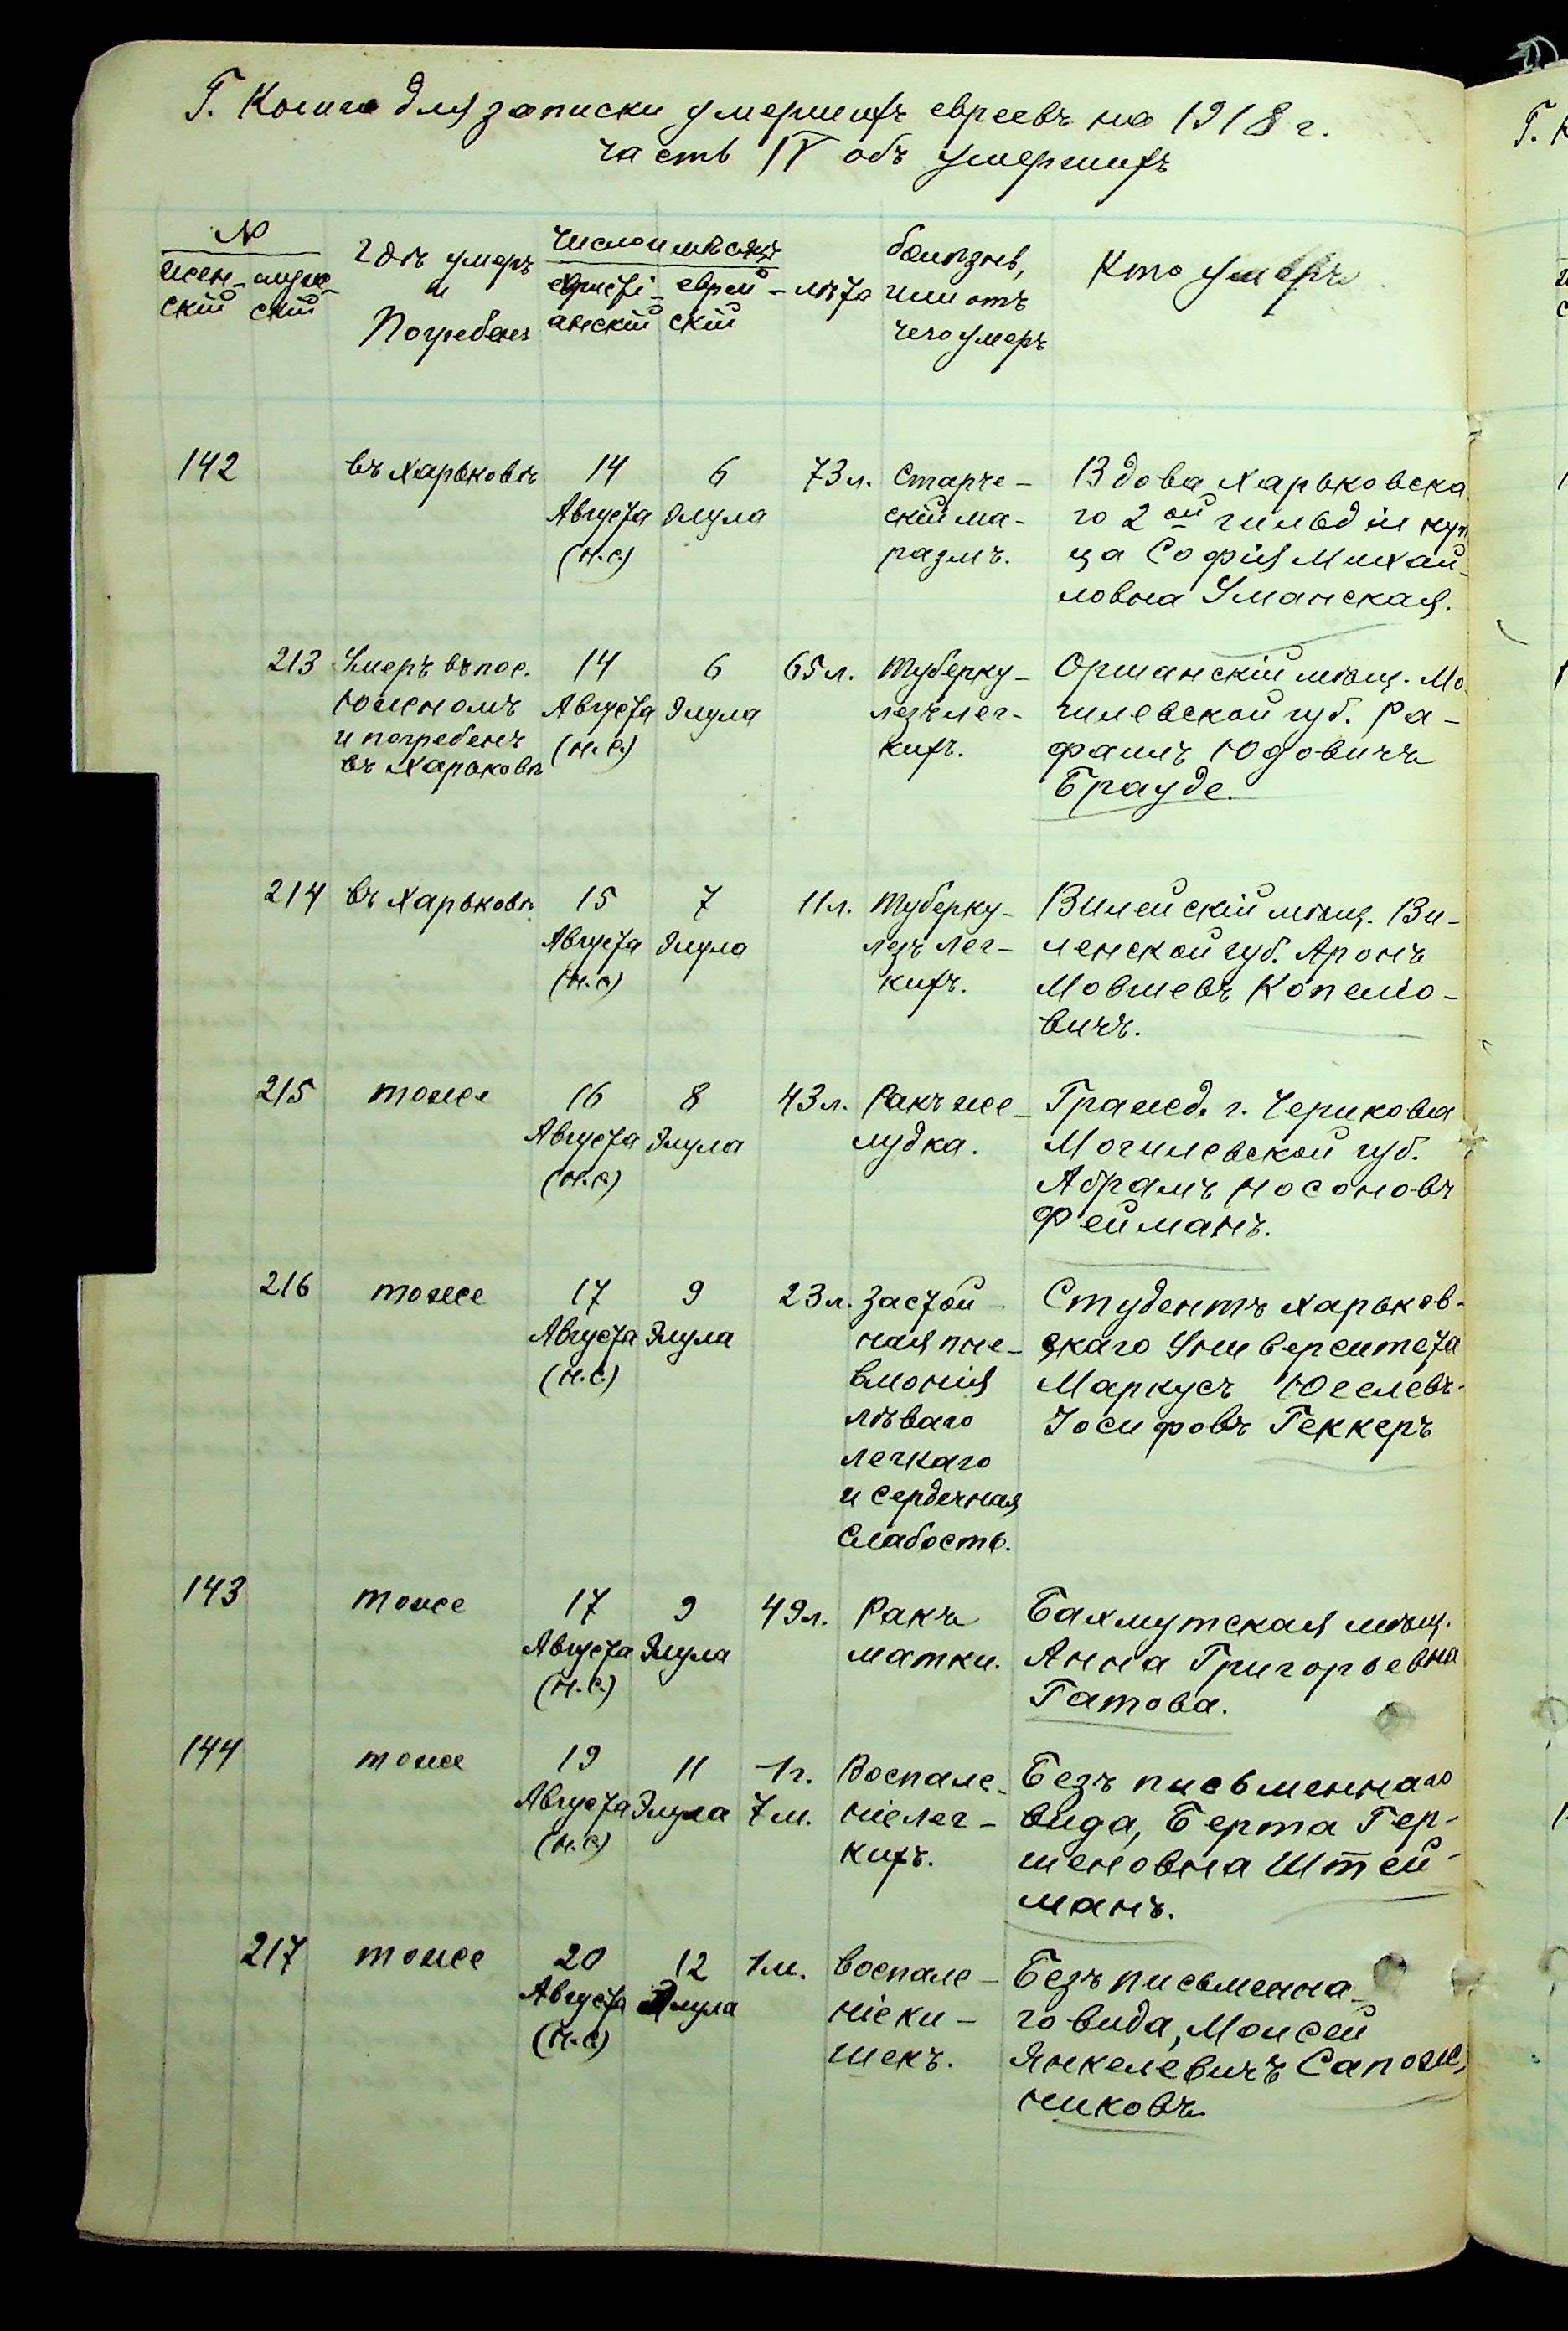 Г. Книга для записки умершихъ евреевъ на 1918 г.
часть IV объ умершихъ
№
женскій
мужескій
Гдѣ умеръ
и
Погребенъ
Число и мѣсяцъ
христі-
анскій
еврей-
скій
лѣта
болѣзнь,
или отъ
чего умеръ
Кто умеръ
142
въ Харьковѣ
14
Августа
(н.с.)
6
Элула
73 л.
Старче-
скій ма-
размъ.
Вдова Харьковска
го 2ой гильдіи куп
ца Софія Михай-
ловна Уманская.
213
Умеръ въ пос.
Южномъ
и погребенъ
въ Харьковѣ
14
Августа
(н.с.)
6
Элула
65 л.
Туберку-
лезъ лег-
кихъ.
Оршанскій мѣщ. Мо-
гилевской губ. Ра-
фаилъ Юдовичъ
Брауде.
214
въ Харьковѣ
15
Августа
(н.с)
7
Элула
11 л.
Туберку-
лезъ лег-
кихъ.
Вилейскій мѣщ. Ви-
ленской губ. Аронъ
Мовшевъ Копелio-
вичъ.
215
тоже
16
Августа
(н.с)
8
Элула
43 л.
Ракъ же-
лудка.
Гражд. г. Черикова
Могилевской губ.
Абрамъ Носоновъ
Фейманъ.
216
тоже
17
Августа
(н.с)
9
Элула
23 л.
Застой-
ная пне-
вмонія
лѣваго
легкаго
и сердечная
слабость.
Студентъ Харьков-
скаго Университета
Маркусъ Юселевъ-
Іосифовъ Геккеръ
143
тоже
17
Августа
(н.с.)
9
Элула
49 л.
Ракъ
матки.
Бахмутская мѣщ.
Анна Григорьевна
Гатова.
144
тоже
19
Августа
(н.с)
11
Элула
1 г.
7 м.
Воспале-
ніе лег-
кихъ.
Безъ письменнаго
вида, Берта Гер-
шеновна Штей-
манъ.
217
тоже
20
Августа
(н.с)
12
Элула
1 м.
воспале-
ніе ки-
шекъ.
Безъ письменна-
го вида, Моисей
Янкелевичъ Сапож-
никовъ.